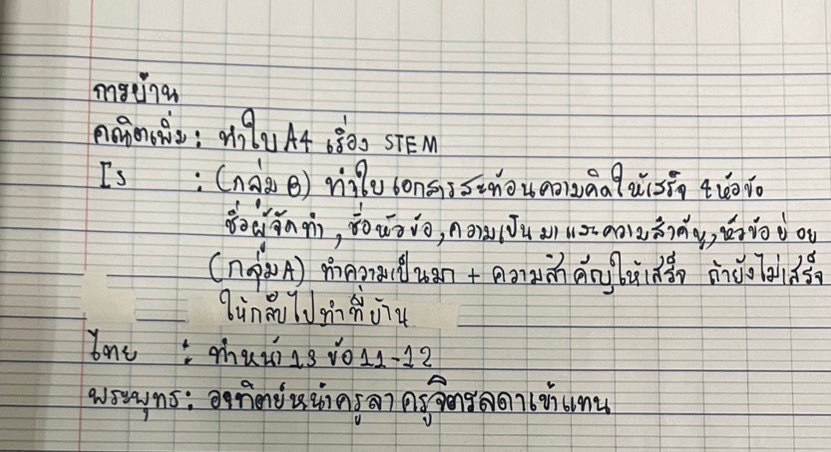 การบ้าน
คณิตเพิ่ม : ทำใบ A4 เรื่อง STEM
Is : (กลุ่ม B) ทำใบเอกสารสะท้อนความคิดให้เสร็จ 4 หัวข้อ
ชื่อผู้จัดทำ , ชื่อหัวข้อ , ความเป็นมาและความสำคัญ , หัวข้อย่อย
(กลุ่ม A) ทำความเป็นมา + ความสำคัญให้เสร็จ ถ้ายังไม่เสร็จ
ให้กลับไปทำที่บ้าน
ไทย : ทำหน้า 13 ข้อ 11-12
พระพุทธ : อาทิตย์หน้าครูลา ครูจิตรลดาเข้าแทน